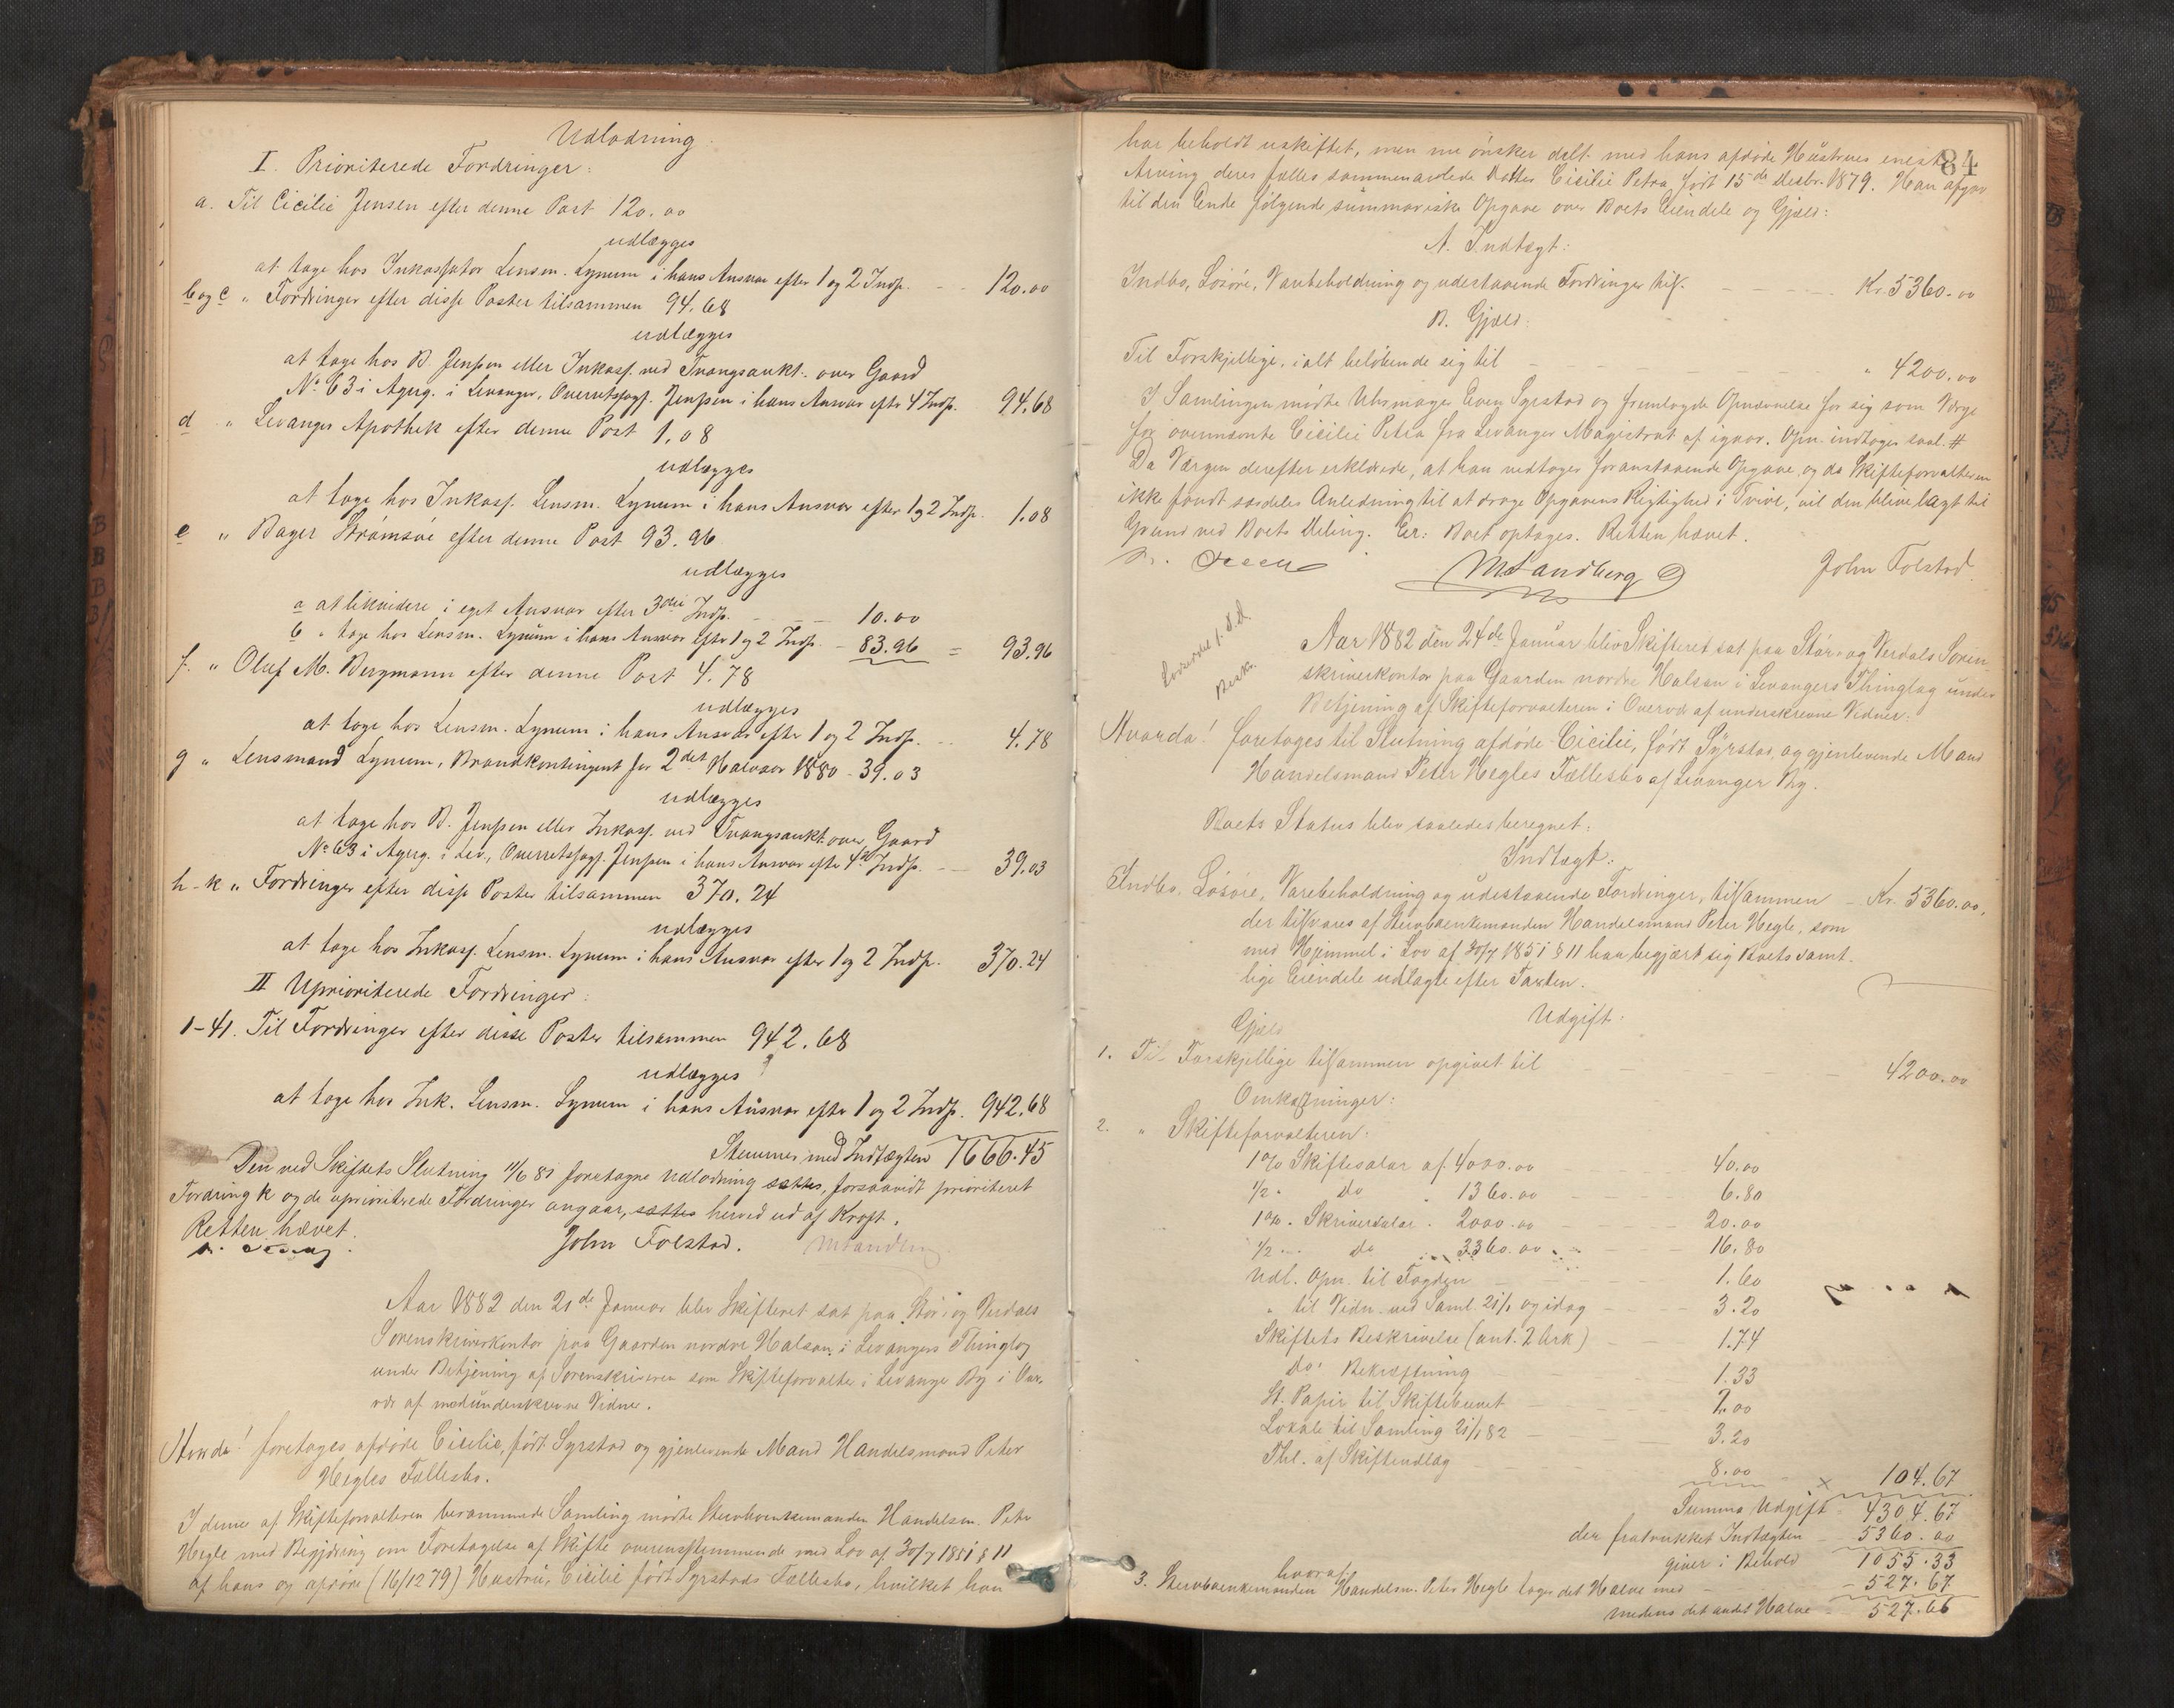 Udlodning.
I. Prioriterede Fordringer:
a. Til Cicilie Jensen efter denne Post 120.00
udlægges
at tage hos Inkassator Lensm. Lynum i hans Ansvar efter 1 og 2 Indp. 120.00
b og c " Fordringer efter disse Poster tilsammen 94.68
udlægges
at tage hos B. Jenssen eller Inkass. ved Tvangsaukt. over Gaard
No 63 i Agerg. i Levanger, Overretssagf. Jenssen i hans Ansvar efter 4 Indp. 94.68
d " Levanger Apothek efter denne Post 1.08
udlægges
at tage hos Inkass. Lensm. Lynum i hans Ansvar efter 1 og 2 Indp. 1.08
e " Bager Strömsöe efter denne Post 93.96
udlægges
a at likvidere i eget Ansvar efter 3die Indp. 10.00
b " tage hos Lensm. Lynum i hans Ansvar efter 1 og 2 Indp. 83.96 = 93.96
f. " Oluf M. Bergmann efter denne Post 4.78
udlægges
at tage hos Lensm. Lynum i hans Ansvar efter 1 og 2 Indp. 4.78
g " Lensmand Lynum, Brandkontingent for 2det Halvaar 1880 - 39.03
udlægges
at tage hos B. Jenssen eller Inkass. ved Tvangsaukt. over Gaard
No 63 i Agerg. i Lev., Overretssagf. Jenssen i hans Ansvar efter 4de Indp. 39.03
h-k " Fordringer efter disse Poster tilsammen 370.24
udlægges
at tage hos Inkass. Lensm. Lynum i hans Ansvar efter 1 og 2 Indp. 370.24
II Uprioriterede Fordringer:
1-41. Til Fordringer efter disse Poster tilsammen 942.68
udlægges
at tage hos Ink. Lensm. Lynum i hans Ansvar efter 1 og 2 Indp. 942.68
Stemmer med Indtægten 1666.45
Den ved Skiftets Slutning 11/6 81 foretagne Udlodning sættes, forsaavidt prioriteret
Fordring k og de uprioriterede Fordringer angaar, sættes herved ud af Kraft.
Retten hævet.
John Folstad. MSandberg
Aar 1882 den 21de Januar blev Skifteret sat paa Stör- og Verdals
Sorenskriverkontor paa Gaarden nordre Halsan i Levangers Thinglag
under Betjening af Sorenskriveren som Skifteforvalter i Levanger By i Over-
vær af medunderskrevne Vidner.
Hvorda! foretages afdöde Cicilie, født Syrstad og gjenlevende Mand Handelsmand Peter
Hegles Fællesbo.
I denne af Skifteforvalteren berammede Samling mödte Stervboenkemanden Handelsm. Peter
Hegle med Begjæring om Foretagelse af Skifte overensstemmende med Lov af 30/7 1851 § 11
af hans og afdöde (16/12 79) Hustru, Cicilie født Syrstads Fællesbo, hvilket han
84
har beholdt uskiftet, men nu önsker delt med hans afdöde Hustrues eneste
Arving deres fælles sammenavlede Datter Cicilie Petra født 15de Decbr. 1879. Han afgav
til den Ende fölgende summariske Opgave over Boets Eiendele og Gjæld:
A. Indtægt:
Indbo, Lösöre, Varebeholdning og udestaaende Fordringer tils. Kr. 5360.00
B. Gjæld:
Til Forskjellige, ialt belöbende sig til " 4200.00
I Samlingen mödte Uhrmager Even Syrstad og fremlagde Opnævnelse for sig som Værge
for ovennævnte Cicilie Petra fra Levanger Magistrat af igaar. Opn. indtages saal. #
Da Værgen derefter erklærede, at han vedtager foranstaaende Opgave, og da Skifteforvalteren
ikke fandt særdeles Anledning til at drage Opgavens Rigtighed i Tvivl, vil den blive lagt til
Grund ved Boets Deling. Er: Boet optages. Retten hævet.
MSandberg John Folstad
Aar 1882 den 24de Januar blev Skifteret sat paa Stör- og Verdals Soren-
skriverkontor paa Gaarden nordre Halsan i Levangers Thinglag under
Betjening af Skifteforvalteren i Overvær af underskrevne Vidner:
Hvorda! foretages til Slutning afdöde Cicilie, født Syrstad, og gjenlevende Mand
Handelsmand Peter Hegles Fællesbo af Levanger By.
Boets Status blev saaledes beregnet:
Indtægt:
Indbo, Lösöre, Varebeholdning og udestaaende Fordringer, tilsammen Kr. 5360.00,
der tilsvares af Stervboenkemanden Handelsmand Peter Hegle, som
med Hjemmel i Lov af 30/7 1851 § 11 har begjært sig Boets samt-
lige Eiendele udlagte efter Taxten.
Udgift:
Gjæld
1. Til Forskjellige tilsammen opgivet til 4200.00
Omkostninger:
2. " Skifteforvalteren:
1% Skiftesalær af 4000.00 40.00
1/2 " do " 1360.00 6.80
1% Skriversalær " 2000.00 20.00
1/2 " do " 3360.00 16.80
Udl. Opn. til Fogden 1.60
" til Vidn. ved Saml. 21/1 og idag 3.20
Skiftets Beskrivelse (ant. 2 Ark) 1.74
do. Bekræftning 1.33
St. Papir til Skiftebrevet 2.00
Lokale til Samling 21/1 82 3.20
Thl. af Skifteudlæg 8.00 104.67
Summa Udgift 4304.67
der fratrukket Indtægten 5360.00
giver i Behold 1055.33
hvoraf
3. Stervboenkemanden Handelsm. Peter Hegle tager det Halve med 527.67
medens det andet Halve 527.66